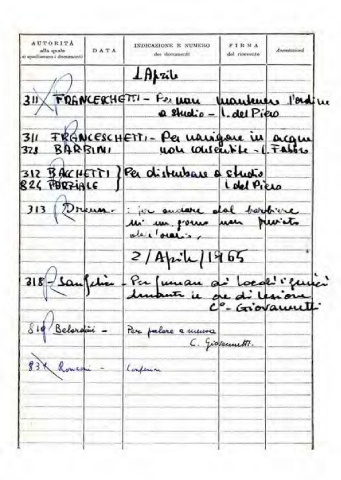 AUTORITÀ
alla quale
si spediscono i documenti
DATA
INDICAZIONE E NUMERO
dei documenti
FIRMA
del ricevente
Annotazioni
1 Aprile
311 FRANCESCHETTI - Per non mantenere l'ordine
a studio - l. del Piero
311 FRANCESCHETTI - Per navigare in acque
321 BARBINI non consentite -
312 BACCHETTI } Per disturbare a studio
824 PORZIALE l del Piero
313 : per andare dal barbiere
in un giorno non previsto
dall'orario.
2/Aprile/1965
318 - - Per fumare ai locali igienici
durante le ore di lezione
C° - Giovannetti
810 Belardini - Per parlare a mensa
C. Giovannetti.
831 Ronconi -